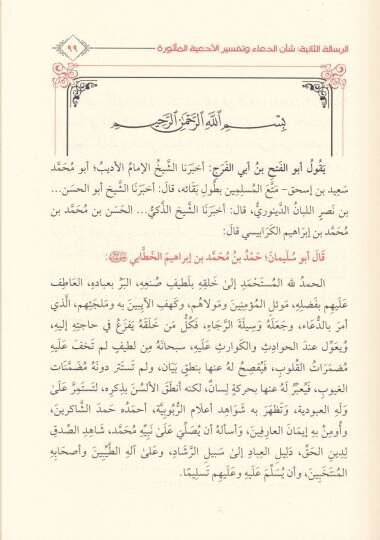 الرسالة الثانية: شأن الدعاء وتفسير الأدعية المأثورة
٩٩
بِسْمِ اللَّهِ الرَّحْمَنِ الرَّحِيمِ
يَقُولُ أبو الفَتحِ بنُ أبي الفَرَجِ: أخبرَنا الشَّيخُ الإمامُ الأديبُ؛ أبو مُحَمَّد
سَعِيد بن إسحق- مَتَّعَ المُسلِمِين بطُولِ بَقَائه، قالَ: أخبَرَنَا الشَّيخ أبو الحسَن...
بن نَصرِ اللبانُ الدِّينوريُّ، قال: أخبرَنَا الشيخ الذَّكيُّ... الحَسَن بن مُحَمَّد بن
مُحَمَّد بن إبرَاهِيم الكَرَابيسي قَالَ:
قَالَ أبو سُلَيمانَ؛ حَمْدُ بنُ مُحَمَّد بن إبراهيمَ الخَطَّابي
الحمدُ لله المُستَحْمَدِ إلىٰ خَلقِهِ بلَطيفِ صُنعِهِ، البَرِّ بعبادِهِ، العَاطِفِ
عَلَيهِم بفَضلِهِ، مَوئلِ المُؤمِنِينَ ومَولاهُم، وكَهفِ الآيبِينَ به ومَلجَئِهِم، الَّذي
أمرَ بالدُّعاء، وجَعَلَهُ وَسِيلَةَ الرَّجَاءِ، فَكُلٌّ مَن خَلقَهُ يَفزَعُ في حاجَتِهِ إليهِ،
ويُعَوِّل عندَ الحوادِثِ والكَوارثِ عَلَيهِ، سبحانَهُ مِن لطيفٍ لم تَخفَ عَلَيهِ
مُضمَرَاتُ القُلوبِ، فَيُفصِحُ لَهُ عنها بنطقِ بَيَان، ولم تَستَتر دونَهُ مُضَمَّنَاتِ
الغيوبِ، فَيُعبِّر لَهُ عنها بحركةِ لِسان، لكنه أنطَقَ الألسُنَ بذِكرِهِ، لتَستَمِرَّ عَلَىٰ
وَلَهِ العبوديةِ، وتَظهَرَ به شَوَاهِد أعلَامِ الرُّبوبِيَّةِ، أحمَدُه حَمدَ الشَّاكِرينَ،
وأُومِنُ به إيمَانَ العارِفينَ، وأسألهُ أن يُصَلِّيَ عَلَىٰ نَبيِّه مُحَمَّد، شَاهِدِ الصِّدقِ
لِدِينِ الحَقِّ، دَلِيلِ العِبادِ إلىٰ سَبيلِ الرَّشَادِ، وعَلَىٰ آلِهِ الطَّيِّبينَ وأصحابِهِ
المُنتَخَبين، وأن يُسَلِّمَ عَلَيهِ وعَلَيهِم تَسلِيمًا.